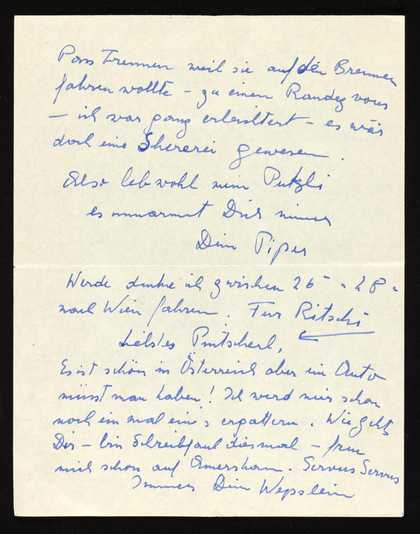 Pass trennen weil sie auf den Brenner
fahren wollte – zu einem Randez vous
– ich war ganz erleichtert – es wär
doch eine Shererei gewesen.
Also leb wohl mein Putzli
es umarmt Dich immer
Dein Piper
Werde denke ich zwischen 26 – 28.
nach Wien fahren. Fur Ritschi
Liebstes Pintscherl,
Es ist schön in Österreich aber ein Auto
müsst man haben! Ich werd mir schon
noch ein mal ein's ergattern. Wie gehts
Dir – bin Schreibfaul diesmal – freu
mich schon auf Amersham. Servus Servus
Immer Dein